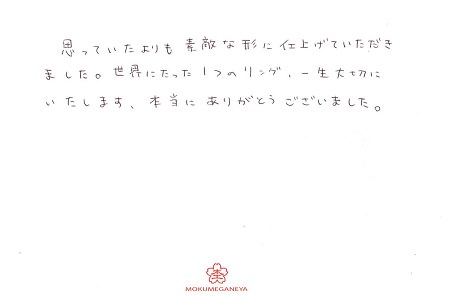 思っていたよりも素敵な形に仕上げていただき
ました。世界にたった1つのリング、一生大切に
いたします、本当にありがとうございました。
MOKUMEGANEYA